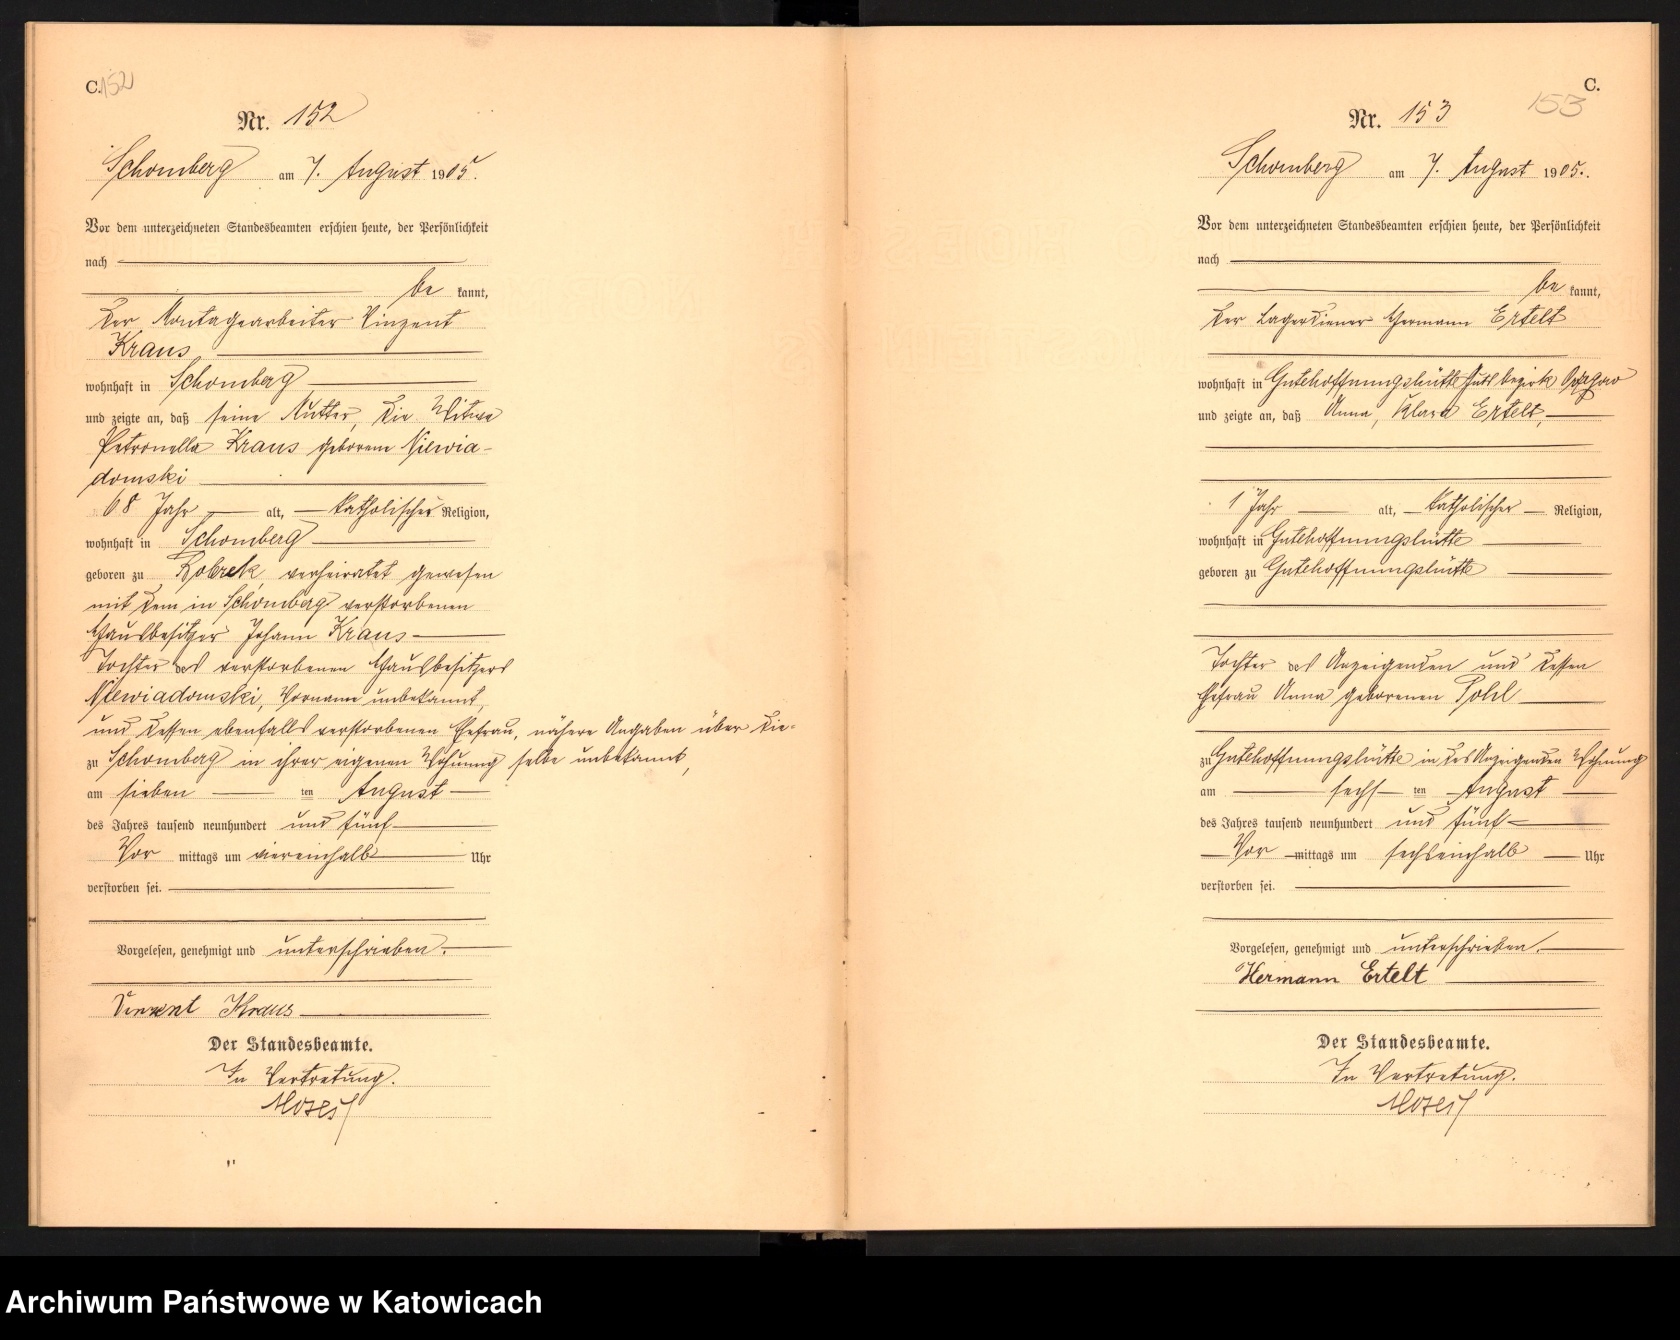 C. 152
Nr. 152
Schomberg am 7. August 1905.
Vor dem unterzeichneten Standesbeamten erschien heute, der Persönlichkeit
nach
be kannt,
der Montagearbeiter Vinzent
Kraus
wohnhaft in Schomberg
und zeigte an, daß seine Mutter, die Witwe
Petronella Kraus geborene Niewia-
domski
68 Jahr alt, katholischer Religion,
wohnhaft in Schomberg
geboren zu Bobrek, verheiratet gewesen
mit dem in Schomberg verstorbenen
Hausbesitzer Johann Kraus
Tochter des verstorbenen Hausbesitzers
Niewiadomski, Vorname unbekannt,
und dessen ebenfalls verstorbenen Ehefrau, nähere Angaben über die-
selbe unbekannt,
zu Schomberg in ihrer eigenen Wohnung
am sieben ten August
des Jahres tausend neunhundert und fünf
Vor mittags um viereinhalb Uhr
verstorben sei.
Vorgelesen, genehmigt und unterschrieben.
Vinzent Kraus
Der Standesbeamte.
In Vertretung.
C.
153
Nr. 153
Schomberg am 7. August 1905.
Vor dem unterzeichneten Standesbeamten erschien heute, der Persönlichkeit
nach
be kannt,
der Lagerdiener Hermann Ertelt
wohnhaft in Gutehoffnungshütte Gutsbezirk Orzegow
und zeigte an, daß Anna, Klara Ertelt,
1 Jahr alt, katholischer Religion,
wohnhaft in Gutehoffnungshütte
geboren zu Gutehoffnungshütte
Tochter des Anzeigenden und dessen
Ehefrau Anna geborenen Pohl
zu Gutehoffnungshütte in des Anzeigenden Wohnung
am sechs ten August
des Jahres tausend neunhundert und fünf
Vor mittags um sechseinhalb Uhr
verstorben sei.
Vorgelesen, genehmigt und unterschrieben.
Hermann Ertelt
Der Standesbeamte.
In Vertretung.
Archiwum Państwowe w Katowicach